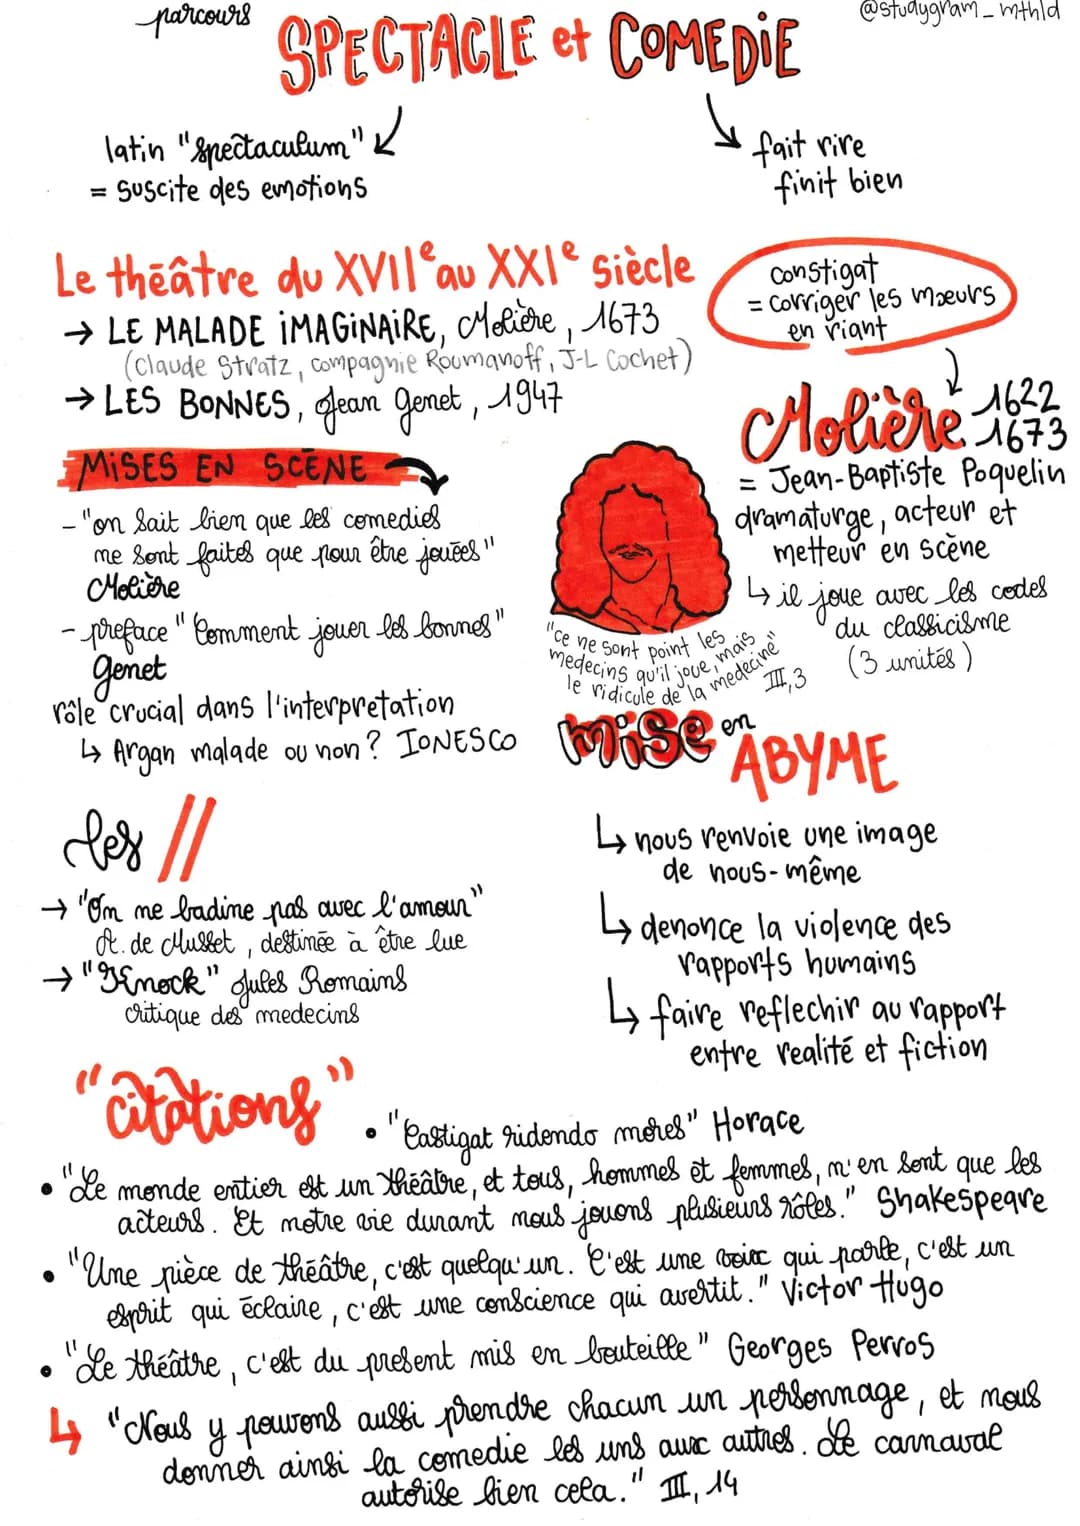 parcours
@studygram_mthld
SPECTACLE et COMEDIE
latin "spectaculum"
= suscite des emotions
fait rire
finit bien
Le théâtre du XVIIe au XXIe siècle
→ LE MALADE IMAGINAIRE, Molière, 1673
(Claude Stratz, compagnie Roumanoff, J-L Cochet)
→ LES BONNES, Jean Genet, 1947
constigat
= corriger les mœurs
en riant
Molière 1622
1673
= Jean-Baptiste Poquelin
dramaturge, acteur et
metteur en scène
↳ il joue avec les codes
du classicisme
(3 unités)
MISES EN SCÈNE
- "on sait bien que les comedies
me sont faites que pour être jouées"
Molière
- preface "Comment jouer les bonnes"
Genet
rôle crucial dans l'interpretation
↳ Argan malade ou non? IONESCO
"ce ne sont point les
medecins qu'il joue, mais
le ridicule de la medecine"
III, 3
mise en
ABYME
↳ nous renvoie une image
de nous-même
↳ denonce la violence des
rapports humains
↳ faire reflechir au rapport
entre realité et fiction
les //
→ "On me badine pas avec l'amour"
A. de Musset, destinée à être lue
→ "Knock" Jules Romains
critique des medecins
"citations"
• "Castigat ridendo mores" Horace
• "Le monde entier est un théâtre, et tous, hommes et femmes, n'en sont que les
acteurs. Et notre vie durant nous jouons plusieurs rôles." Shakespeare
• "Une pièce de théâtre, c'est quelqu'un. C'est une voix qui parle, c'est un
esprit qui éclaire, c'est une conscience qui avertit." Victor Hugo
• "Le théâtre, c'est du present mis en bouteille" Georges Perros
↳ "Nous y pouvons aussi prendre chacun un personnage, et nous
donner ainsi la comedie les uns aux autres. Le carnaval
autorise bien cela." III, 14